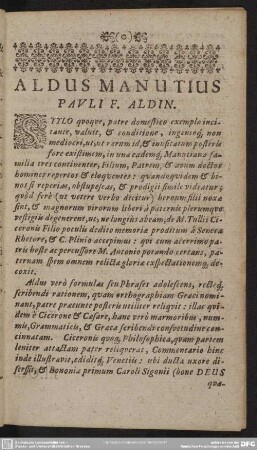 (o)
ALDUS MANUTIUS
PAVLI F. ALDIN.
STYLO quoque, patre domestico exemplo inci-
tante, valuit, & conditione, ingenioq; non
mediocri, ut, ut rarum id, & inusitatum posteris
fore existimem, in una eademq; Manutiana fa-
milia tres continenter, Filium, Patrem, & avum doctos
homines reperiri & eloquentes: quandoquidem & bi-
nos si reperias, obstupescas, & prodigii simile videatur;
quòd ferè (ut vetere verbo dicitur) heroum filii noxæ
sint, & magnorum virorum liberi à paternis plerumque
vestigiis degenerent, ut, ne longius abeam, de M. Tullii Ci-
ceronis Filio poculis dedito memoriæ proditum à Seneca
Rhetore, & C. Plinio accepimus: qui cum acerrimo pa-
tris hoste ac percussore M. Antonio potando certans, pa-
ternam spem omnem relictæ gloriæ exspectationemq; de-
coxit.
Aldus verò formulas seu Phrases adolescens, rectéq;
scribendi rationem, quam orthographiam Græci nomi-
nant, patre præeunte posteris utiliter reliquit: illas qui-
dem è Cicerone & Cæsare, hanc verò marmoribus, num-
mis, Grammaticis, & Græca scribendi consuetudine con-
cinnatam. Ciceronis quoq; Philosophica, quam partem
leniter attactam pater reliquerat, Commentario hinc
inde illustravit, ediditq; Venetiis: ubi ducta uxore di-
sertis, & Bononiæ primum Caroli Sigonii (bone DEUS
qua-